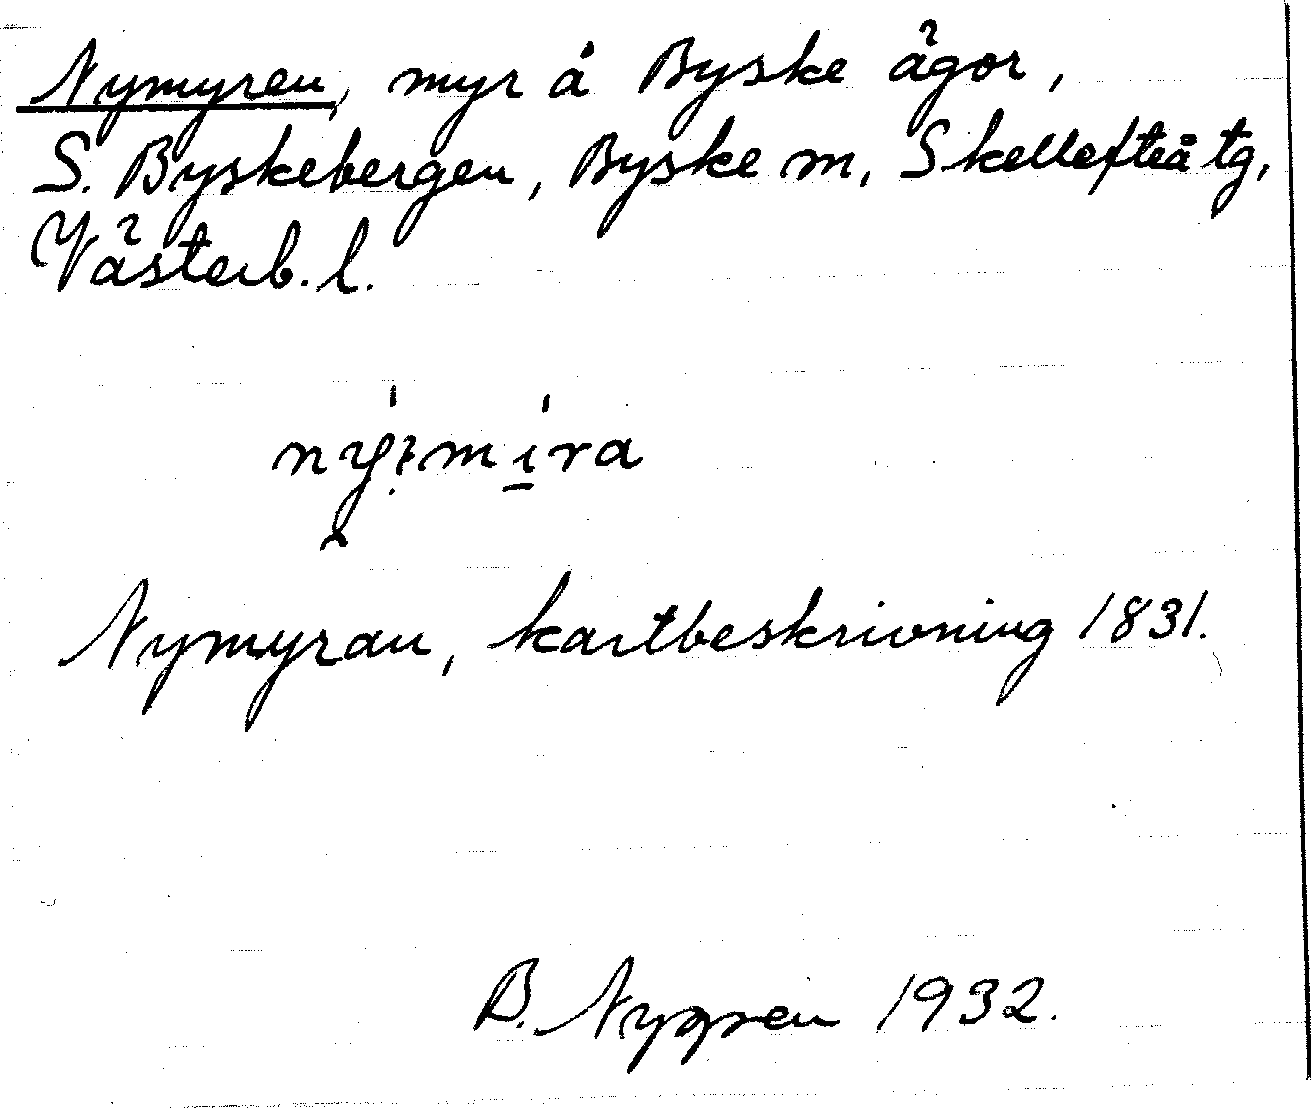 Nymyren, myr å Byske ägor,
S. Byskebergen, Byske sn, Skellefteå tg,
Västerb. l.
Nymyran, kartbeskrivning 1831.
B. Nygren 1932.